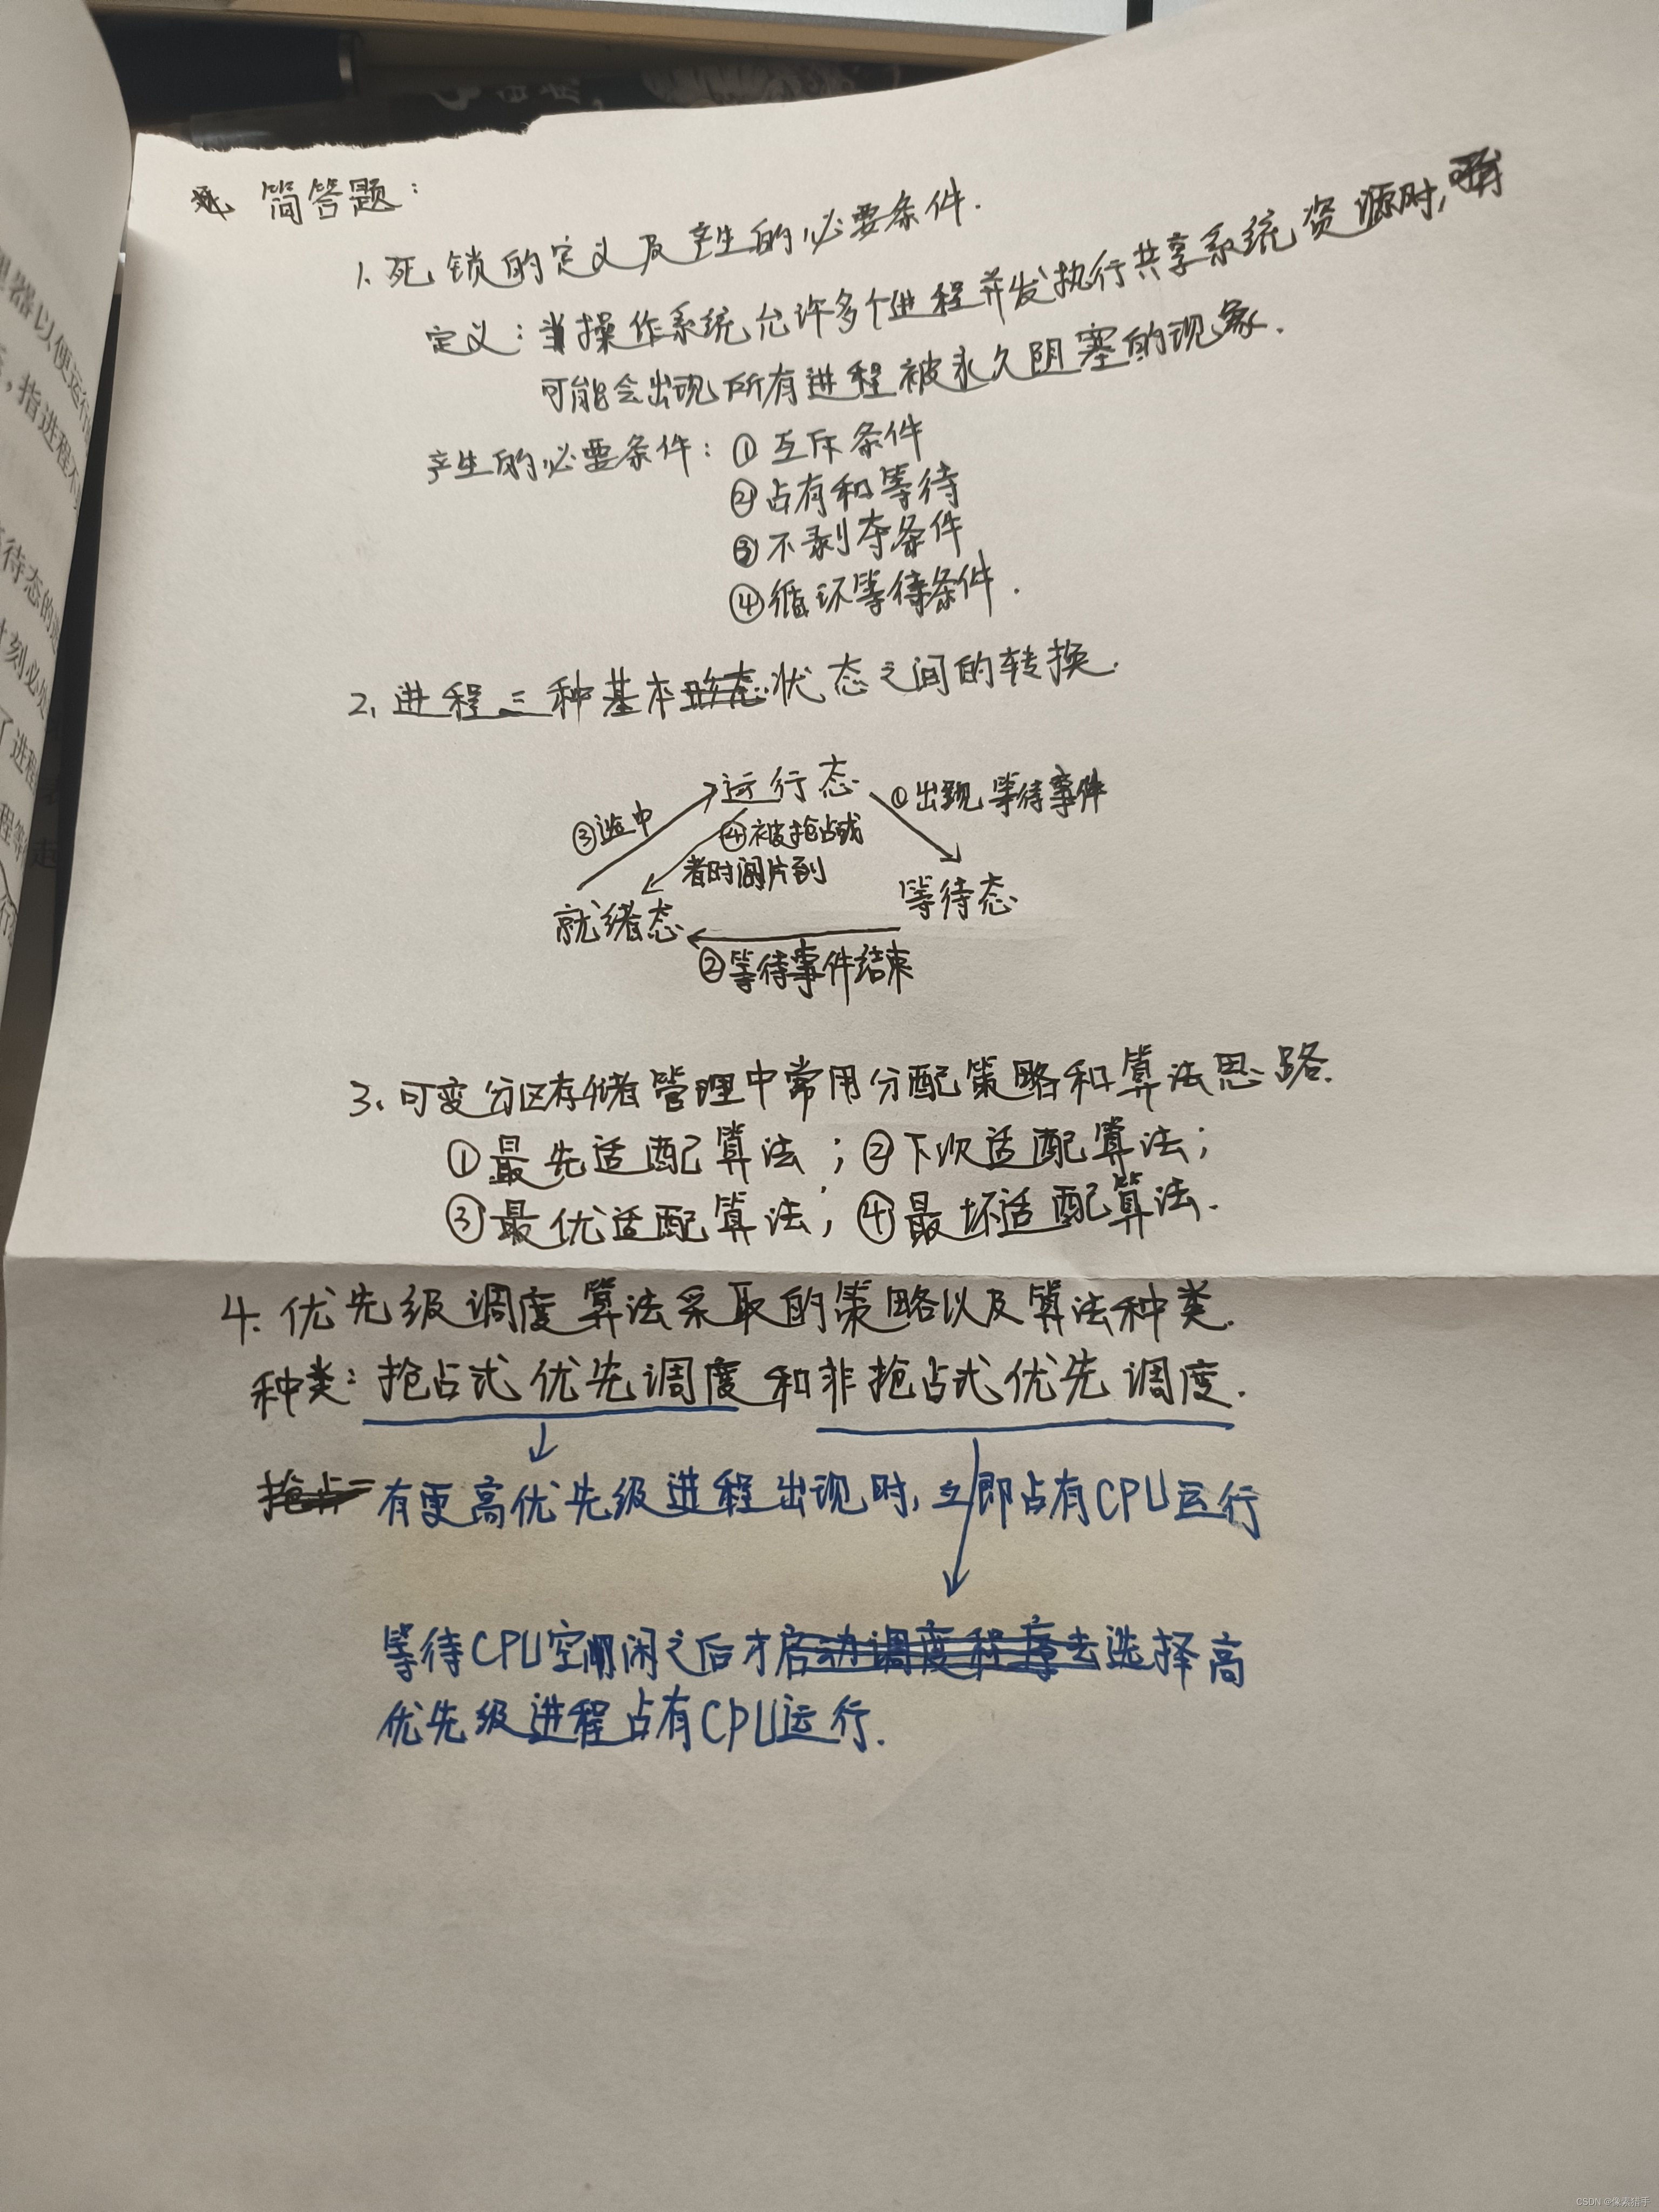 简答题：
1. 死锁的定义及产生的必要条件.
定义：当操作系统允许多个进程并发执行共享系统资源时,
可能会出现所有进程被永久阴塞的现象.
产生的必要条件：① 互斥条件
② 占有和等待
③ 不剥夺条件
④ 循环等待条件.
2. 进程三种基本形态状态之间的转换.
运行态
① 出现等待事件
③ 选中
④ 被抢占或
者时间片到
等待态
就绪态
② 等待事件结束
3. 可变分区存储管理中常用分配策略和算法思路.
① 最先适配算法；② 下次适配算法；
③ 最优适配算法；④ 最坏适配算法.
4. 优先级调度算法采取的策略以及算法种类.
种类：抢占式优先调度和非抢占式优先调度.
抢占 有更高优先级进程出现时, 立即占有CPU运行
等待CPU空闲之后才启动调度程序去选择高
优先级进程占有CPU运行.
器以便运行
，指进程不
待态的进
刻必处
了进程
程等
CSDN @像素猎手